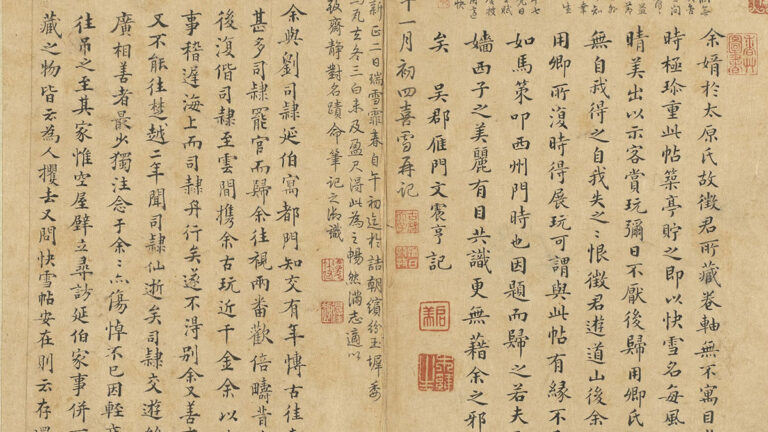 余婿於太原氏故徵君所藏卷軸無不寓目
時極珍重此帖築亭貯之即以快雪名每風
晴美出以示客賞玩彌日不厭後歸用卿氏
無自我得之自我失之〻恨徵君遊道山後余
用卿所復時得展玩可謂與此帖有緣不
如馬策叩西州門時也因題而歸之若夫
嬙西子之美麗有目共識更無藉余之邪
矣 吳郡雁門文震亨記
十一月初四喜雪再記
新正二日瑞雪霏春自午初迄於詰朝繽紛玉墀委
瓦去冬三白未及盈尺得此為之暢然滿志適以
齋靜對名蹟命筆記之御識
余與劉司隸延伯寓都門知交有年博古往
甚多司隸罷官而歸余往視兩番歡倍疇昔
後復偕司隸至雲間攜余古玩近千金余以
事稽遲海上而司隸舟行矣遂不得別余又善
又不能往楚越二年聞司隸仙逝矣司隸交遊
廣相善者最少獨注念于余〻亦傷悼不已因輕
往弔之至其家惟空屋壁立尋訪延伯家事併
藏之物皆云為人攫去又問快雪帖安在則云存